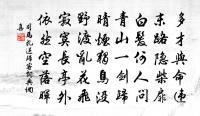 多才與命違
末路憶柴扉
白髮何人問
青山一劍歸
晴煙獨鳥沒
野渡亂花飛
寂寞長亭外
依然空落暉
司馬札送歸客